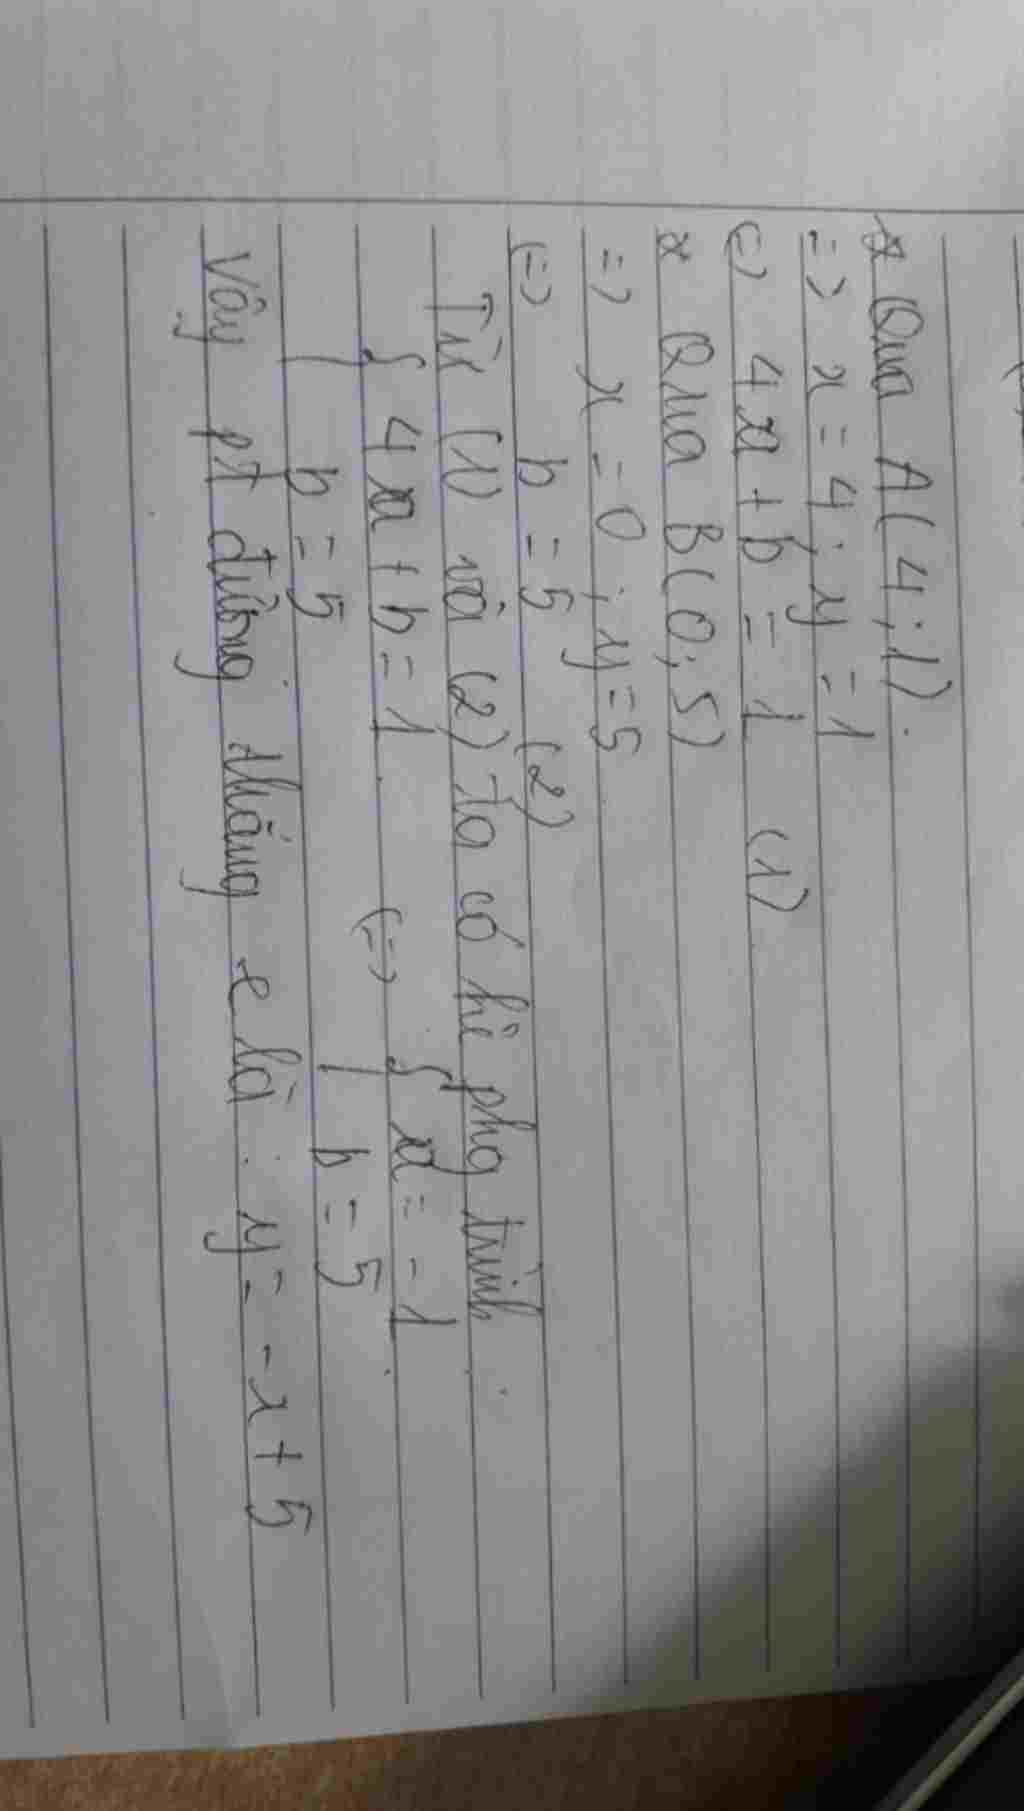 * Qua A(4;1).
=> x = 4; y = 1
<=> 4a + b = 1 (1)
* Qua B(0;5)
=> x = 0; y = 5
<=> b = 5 (2)
Từ (1) và (2) ta có hê phg trình.
{ 4a + b = 1 <=> { a = -1
b = 5 b = 5
Vậy pt đường thẳng e là: y = -x + 5